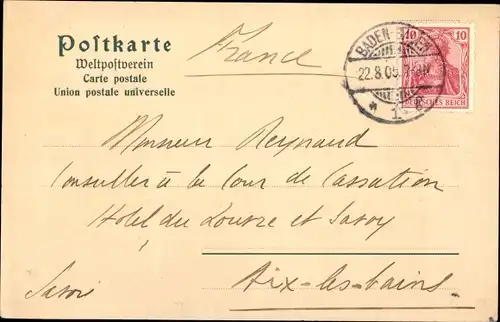 Postkarte
Weltpostverein
Carte postale
Union postale universelle
France
BADEN-BADEN
22.8.05.
* 1
10 10
DEUTSCHES REICH
Monsieur Reynaud
Conseiller à la Cour de Cassation
Hotel du Louvre et Savoy
Aix-les-bains
Savoie